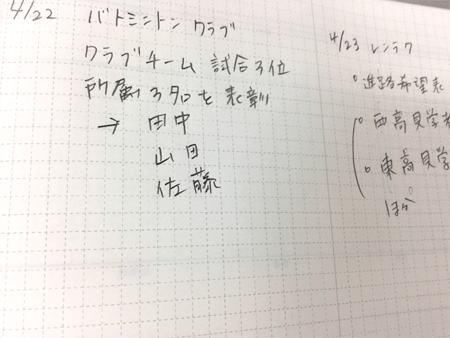 4/22 バトミントン クラブ
クラブチーム 試合3位
所属 3名を表彰
→ 田中
山田
佐藤
4/23 レンラク
○進路希望表
○西高見学
○東高見学
ほか